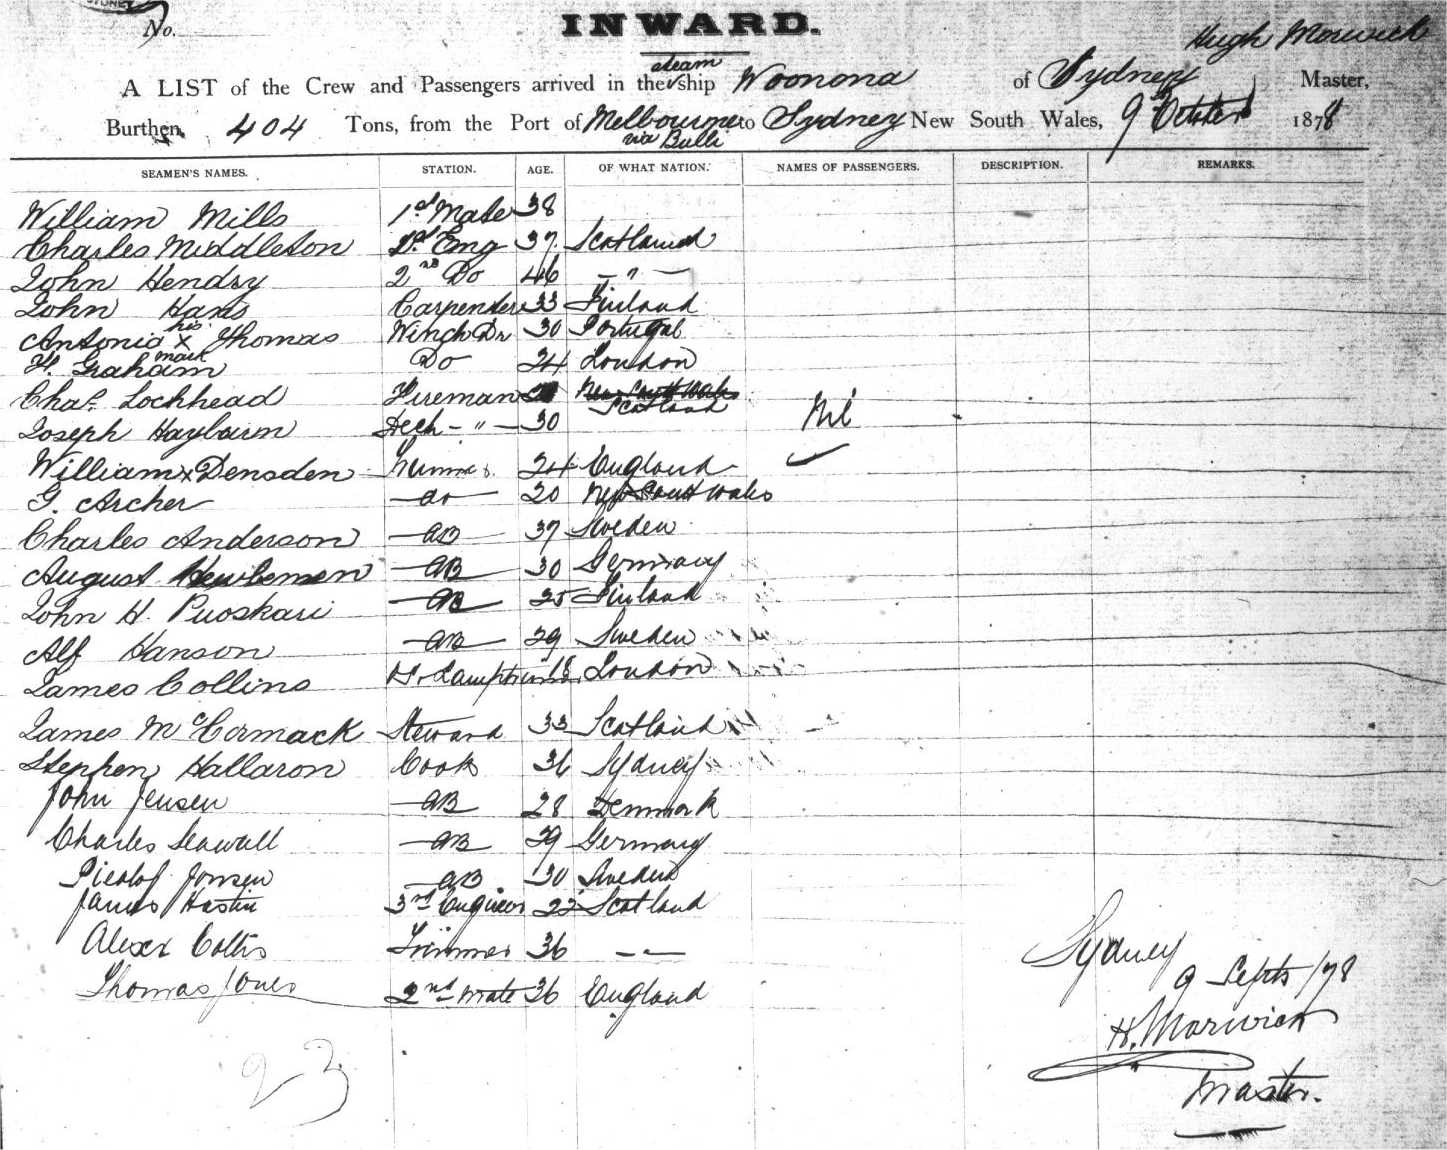 SYDNEY
No.
INWARD.
Hugh Morwick
steam
A LIST of the Crew and Passengers arrived in the ship Woonona of Sydney Master,
Burthen, 404 Tons, from the Port of Melbourne to Sydney New South Wales, 9 October 1878
via Bulli
SEAMEN'S NAMES. STATION. AGE. OF WHAT NATION. NAMES OF PASSENGERS. DESCRIPTION. REMARKS.
William Mills 1st Mate 38
Charles Middleton 1st Eng 37 Scotland
John Hendry 2nd Do 46 - " -
John Hans Carpender 33 Finland
his
Antonio x Thomas Winch Dr 30 Portugal
mark
H. Graham Do 24 London
Chas. Lochhead Fireman New South Wales
Scotland
Joseph Hayburn - " - 30
Nil
William x Densden 24 England
G. Archer do 20 New South Wales
Charles Anderson AB 37 Sweden
August AB 30 Germany
John H. Puoskari AB 25 Finland
Alf Hanson AB 29 Sweden
James Collins 18 London
James McCormack Steward 33 Scotland
Stephen Hallaron Cook 36 Sydney
John Jensen AB 28 Denmark
Charles Seawall AB 29 Germany
Jonsen AB 30 Sweden
James Hastie 3rd Engineer 22 Scotland
Alexr Coltis Trimmer 36 - -
Thomas Jones 2nd mate 36 England
Sydney
9 Septr /78
H. Morwick
Master.
23